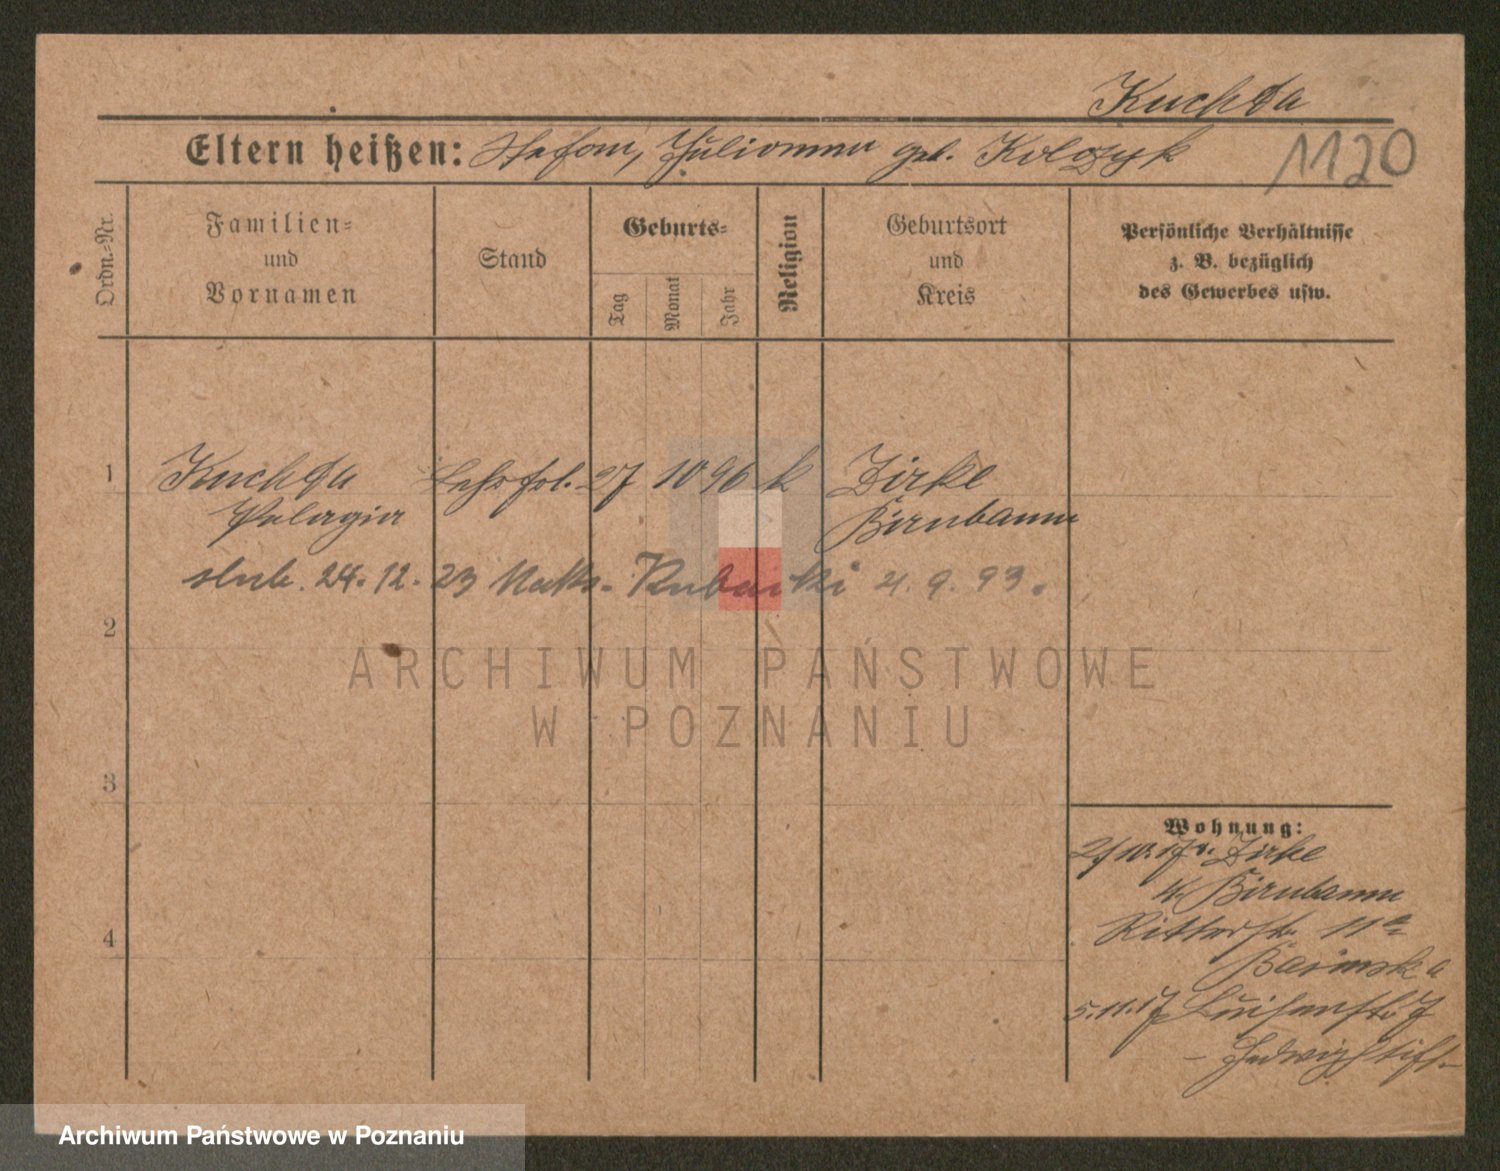 Kuchda
Eltern heißen: Stefan, Julianna geb. Kolozyk
1120
Ordn.-Nr.
Familien-
und
Vornamen
Stand
Geburts-
Tag
Monat
Jahr
Religion
Geburtsort
und
Kreis
Persönliche Verhältnisse
z. B. bezüglich
des Gewerbes usw.
1
Kuchda
Pelagia
27 10 96 k
Zirke
Birnbaum
ślub. 24.12.23 Rubacki 4.9.93.
2
3
4
ARCHIWUM PAŃSTWOWE
W POZNANIU
Wohnung:
2/10.17 v. Zirke
K. Birnbaum
Ritterstr. 11a
5.11.17 Luisenstr. 7
- Hedwigstift.
Archiwum Państwowe w Poznaniu